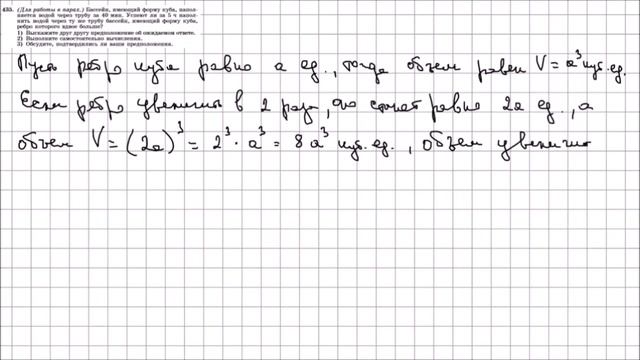 433. (Для работы в парах.) Бассейн, имеющий форму куба, напол-
няется водой через трубу за 40 мин. Успеют ли за 5 ч напол-
нить водой через ту же трубу бассейн, имеющий форму куба,
ребро которого вдвое больше?
1) Выскажите друг другу предположение об ожидаемом ответе.
2) Выполните самостоятельно вычисления.
3) Обсудите, подтвердились ли ваши предположения.
Пусть ребро куба равно a ед., тогда объем равен V = a³ куб. ед.
Если ребро увеличить в 2 раза, оно станет равно 2a ед., а
объем V = (2a)³ = 2³ · a³ = 8a³ куб. ед., объем увеличит